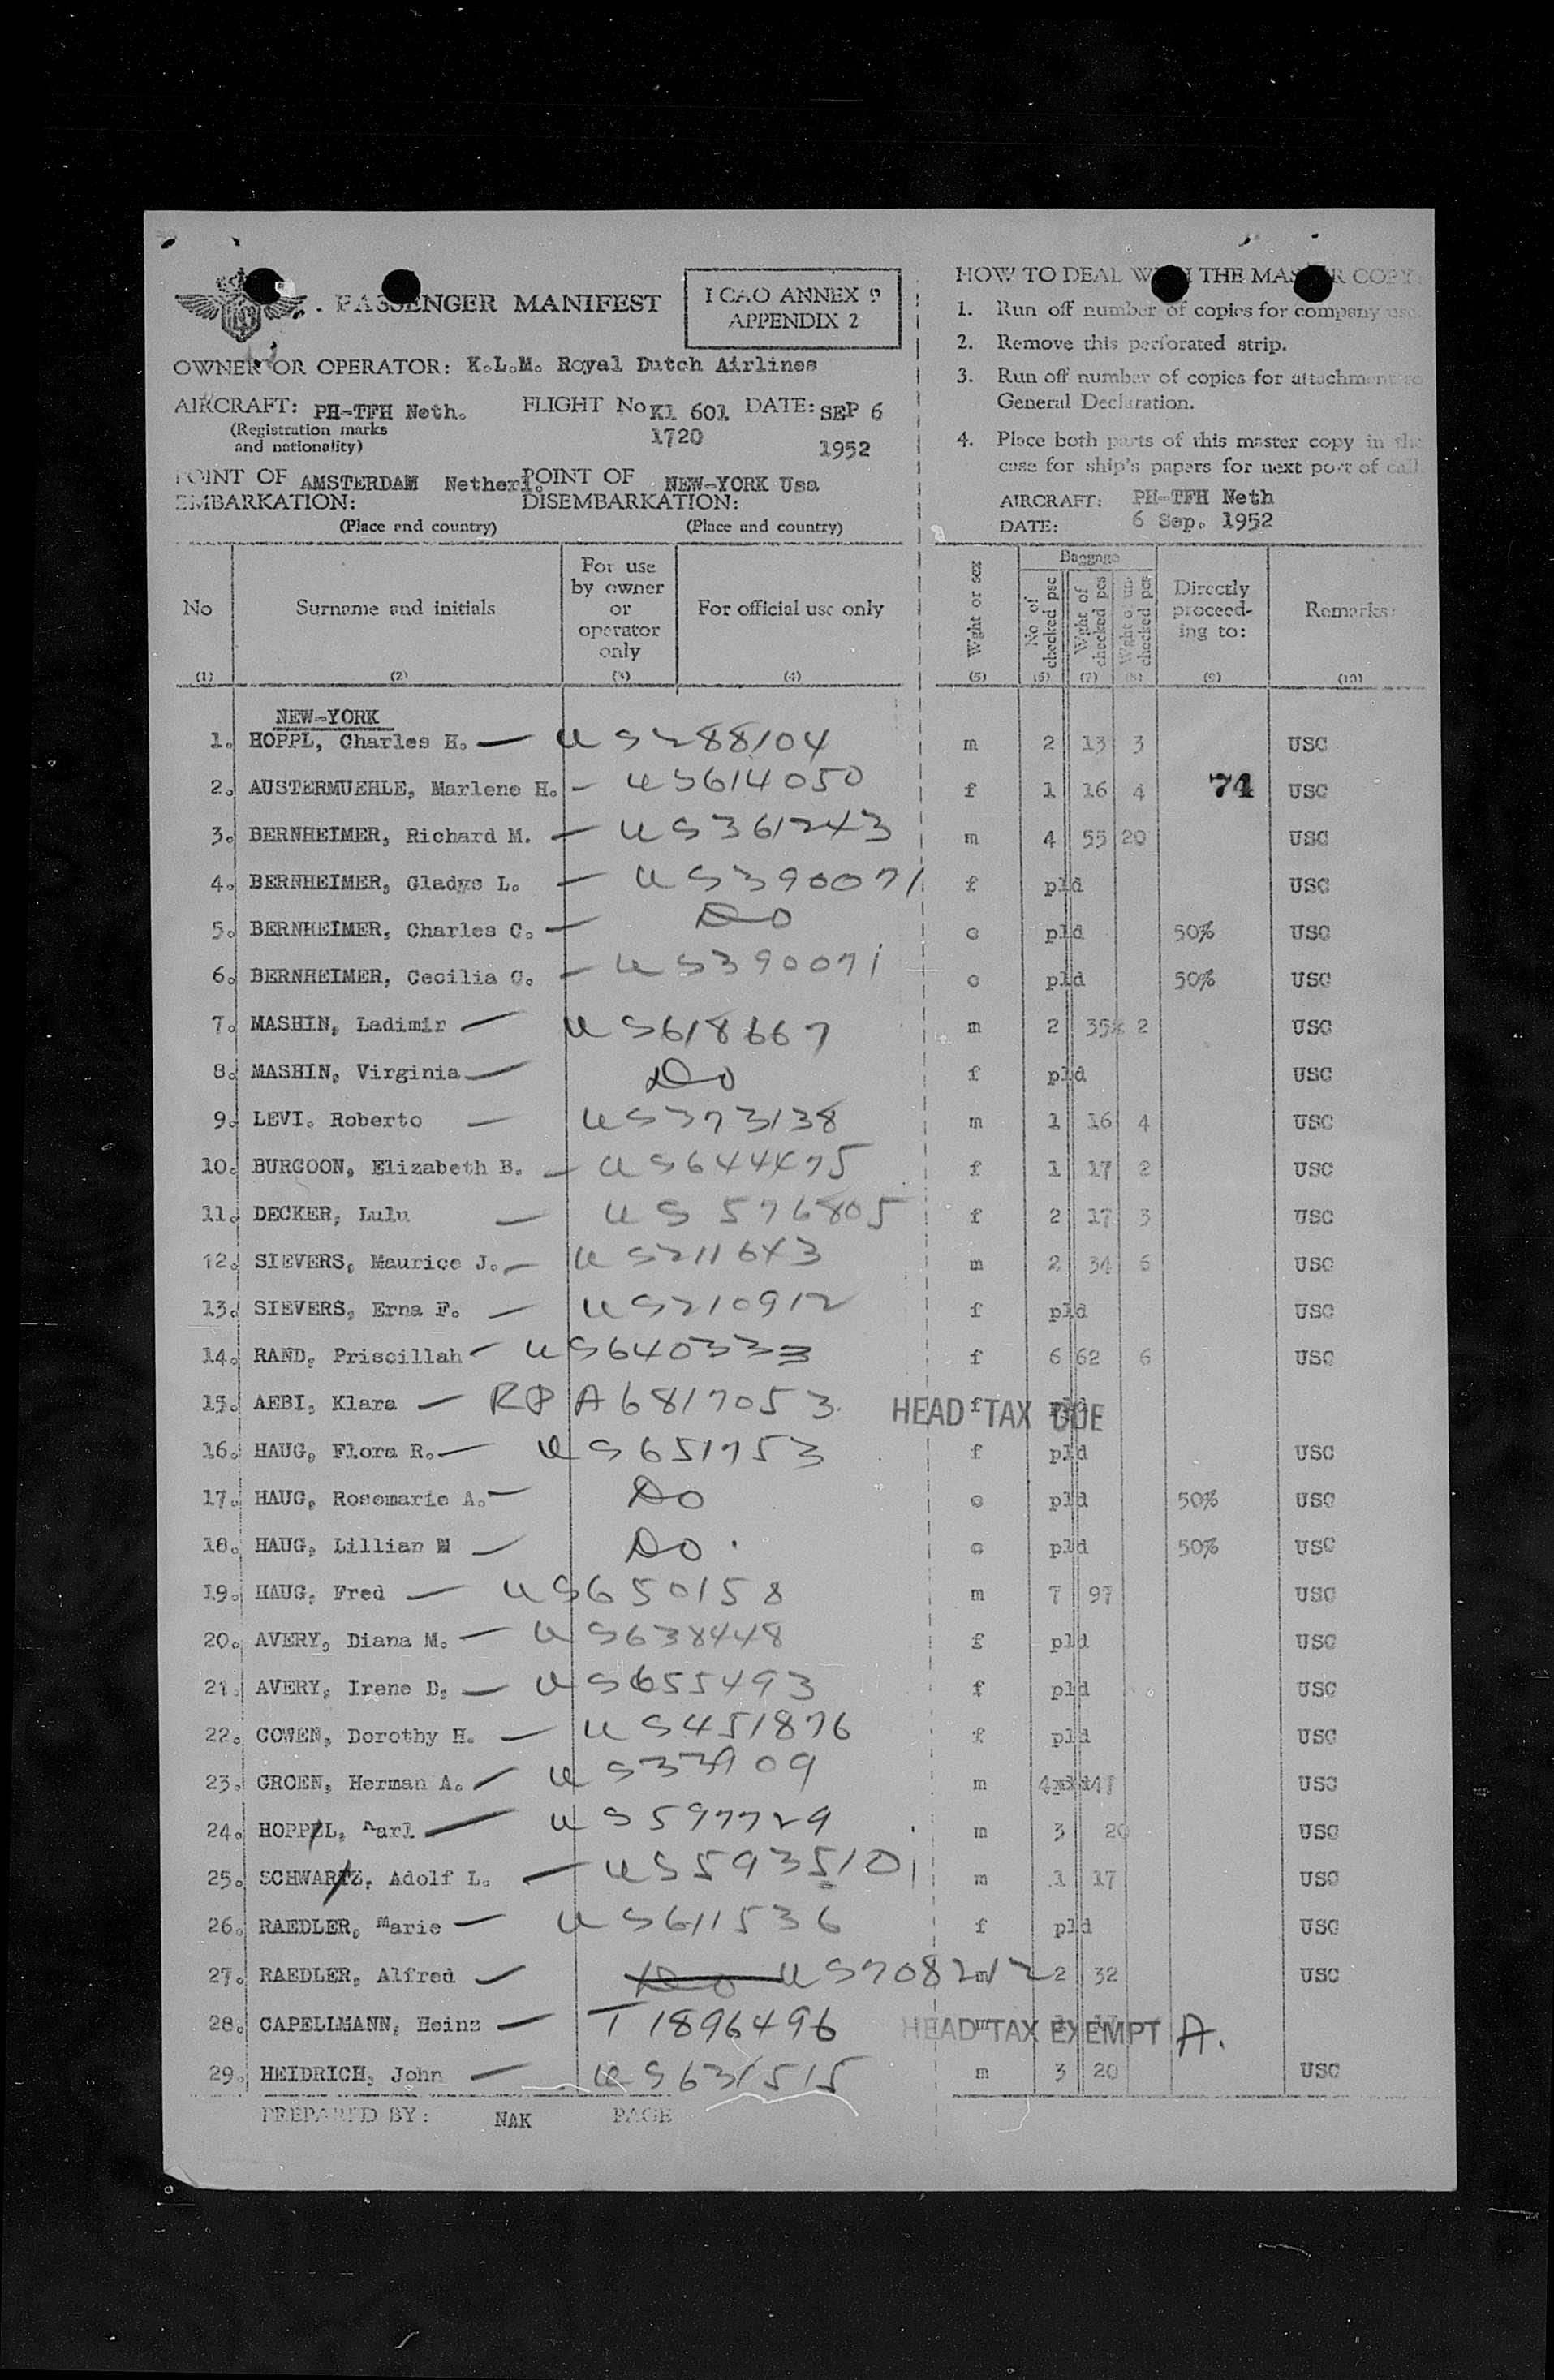 PASSENGER MANIFEST
ICAO ANNEX 9
APPENDIX 2
OWNER OR OPERATOR: K.L.M. Royal Dutch Airlines
AIRCRAFT: PH-TFH Neth. FLIGHT No Kl 601 DATE: SEP 6
(Registration marks 1720 1952
and nationality)
POINT OF AMSTERDAM Netherl. POINT OF NEW-YORK Usa
EMBARKATION: DISEMBARKATION:
(Place and country) (Place and country)
HOW TO DEAL WITH THE MASTER COPY
1. Run off number of copies for company use.
2. Remove this perforated strip.
3. Run off number of copies for attachment to
General Declaration.
4. Place both parts of this master copy in the
case for ship's papers for next port of call.
AIRCRAFT: PH-TFH Neth
DATE: 6 Sep. 1952
No Surname and initials For use by owner or operator only For official use only Wght or sex Baggage No of checked psc Wght of checked pcs Wght of un-checked pcs Directly proceed-ing to: Remarks:
(1) (2) (3) (4) (5) (6) (7) (8) (9) (10)
NEW-YORK
1. HOPPL, Charles H. — US288104 m 2 13 3 USC
2. AUSTERMUEHLE, Marlene H. — US614050 f 1 16 4 74 USC
3. BERNHEIMER, Richard M. — US361243 m 4 55 20 USC
4. BERNHEIMER, Gladys L. — US390071 f pld USC
5. BERNHEIMER, Charles C. — Do c pld 50% USC
6. BERNHEIMER, Cecilia C. — US390071 c pld 50% USC
7. MASHIN, Ladimir — US618667 m 2 35 2 USC
8. MASHIN, Virginia — Do f pld USC
9. LEVI. Roberto — US373138 m 1 16 4 USC
10. BURGOON, Elizabeth B. — US644475 f 1 17 2 USC
11. DECKER, Lulu — US 576805 f 2 17 3 USC
12. SIEVERS, Maurice J. — US211643 m 2 34 6 USC
13. SIEVERS, Erna F. — US210912 f pld USC
14. RAND, Priscillah — US640333 f 6 62 6 USC
15. AEBI, Klara — RP A6817053 HEAD TAX DUE f pld
16. HAUG, Flora R. — US651753 f pld USC
17. HAUG, Rosemarie A. — Do c pld 50% USC
18. HAUG, Lillian M — Do. c pld 50% USC
19. HAUG, Fred — US650158 m 7 97 USC
20. AVERY, Diana M. — US638448 f pld USC
21. AVERY, Irene D. — US655493 f pld USC
22. COWEN, Dorothy H. — US451876 f pld USC
23. GROEN, Herman A. — m 47 USC
24. HOPPEL, Karl — US597729 m 3 20 USC
25. SCHWARTZ, Adolf L. — US593510 m 1 17 USC
26. RAEDLER, Marie — US611536 f pld USC
27. RAEDLER, Alfred — Do US708212 m 2 32 USC
28. CAPELLMANN, Heinz — T1896496 HEAD TAX EXEMPT A. m
29. HEIDRICH, John — US631515 m 3 20 USC
PREPARED BY: NAK PAGE